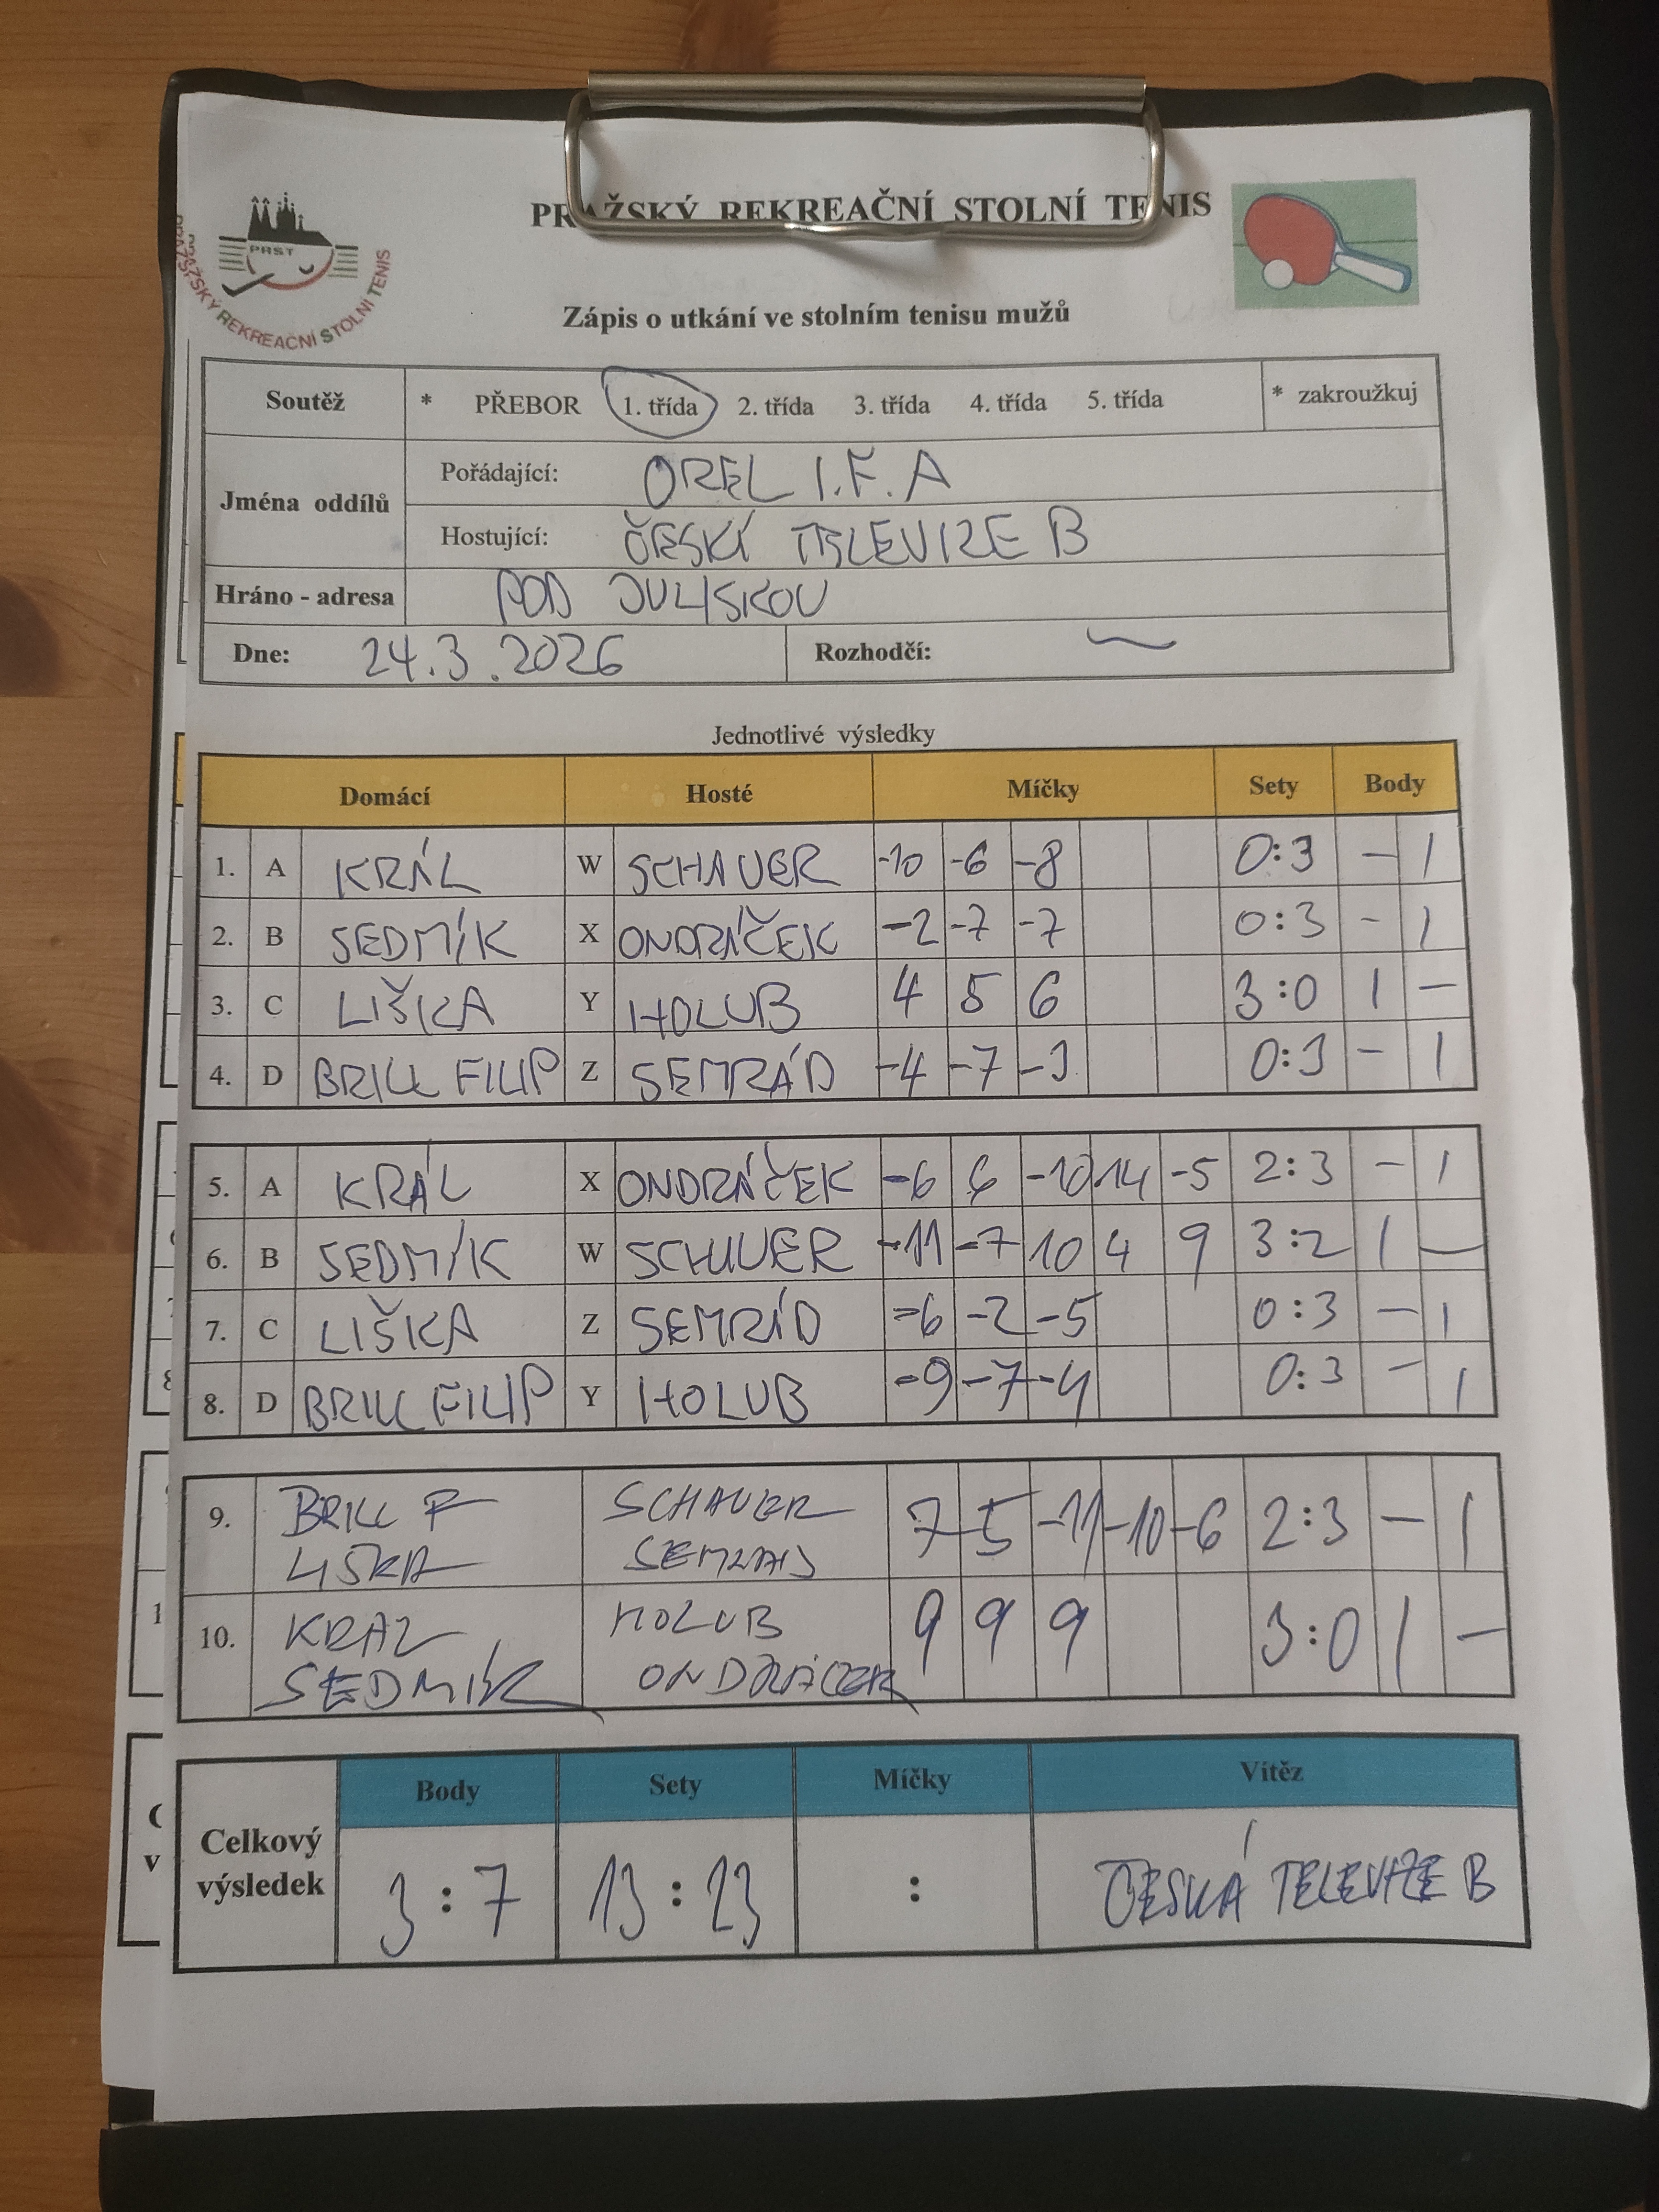 PRAŽSKÝ REKREAČNÍ STOLNÍ TENIS
PRST
PRAŽSKÝ REKREAČNÍ STOLNÍ TENIS
Zápis o utkání ve stolním tenisu mužů
Soutěž * PŘEBOR 1. třída 2. třída 3. třída 4. třída 5. třída * zakroužkuj
Jména oddílů
Pořádající: OREL I.F. A
Hostující: ČESKÁ TELEVIZE B
Hráno - adresa POD JULISKOU
Dne: 24.3.2026 Rozhodčí: —
Jednotlivé výsledky
Domácí Hosté Míčky Sety Body
1. A KRÁL W SCHAUER -10 -6 -8 0:3 - 1
2. B SEDMÍK X ONDRÁČEK -2 -7 -7 0:3 - 1
3. C LIŠKA Y HOLUB 4 5 6 3:0 1 -
4. D BRILL FILIP Z SEMRÁD -4 -7 -3 0:3 - 1
5. A KRÁL X ONDRÁČEK -6 6 -10 14 -5 2:3 - 1
6. B SEDMÍK W SCHAUER -11 -7 10 4 9 3:2 1 -
7. C LIŠKA Z SEMRÁD -6 -2 -5 0:3 - 1
8. D BRILL FILIP Y HOLUB -9 -7 -4 0:3 - 1
9. BRILL F SCHAUER 7 5 -11 -10 -6 2:3 - 1
LIŠKA SEMRÁD
10. KRÁL HOLUB 9 9 9 3:0 1 -
SEDMÍK ONDRÁČEK
Body Sety Míčky Vítěz
Celkový výsledek 3:7 13:23 : ČESKÁ TELEVIZE B